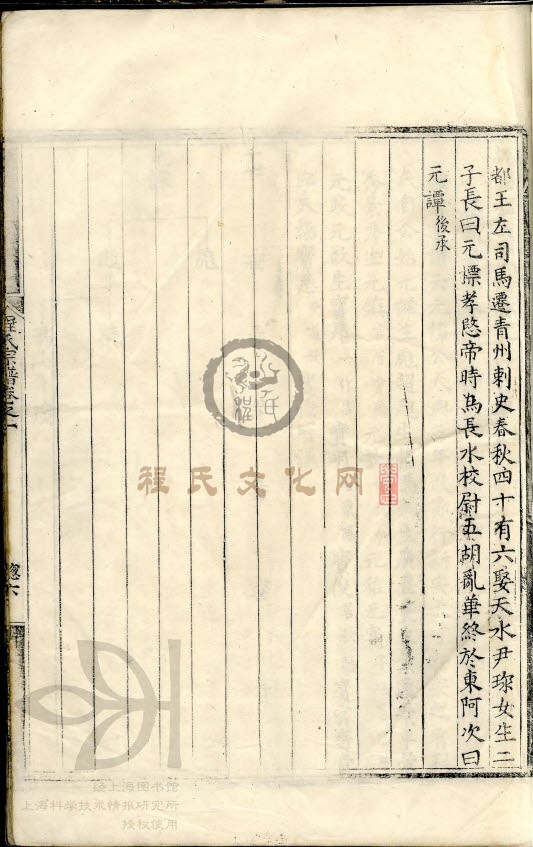 都王左司馬遷青州刺史春秋四十有六娶天水尹琛女生二
子長曰元㵱孝愍帝時為長水校尉五胡亂華終於東阿次曰
元譚後承
程氏宗譜卷之
總六
程氏文化网
经上海图书馆
上海科学技术情报研究所
授权使用